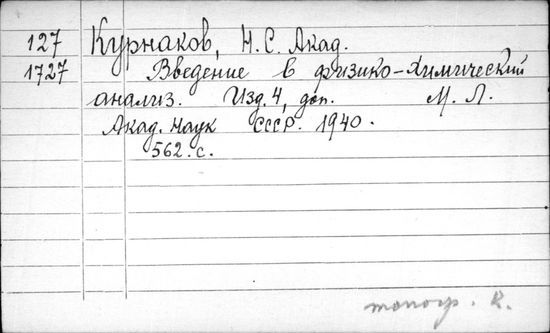 127 Курнаков, Н.С. Акад.
1727 Введение в физико-химический
анализ. Изд. 4, доп. М. Л.
Акад. наук СССР. 1940.
562. с.
моногр. К.